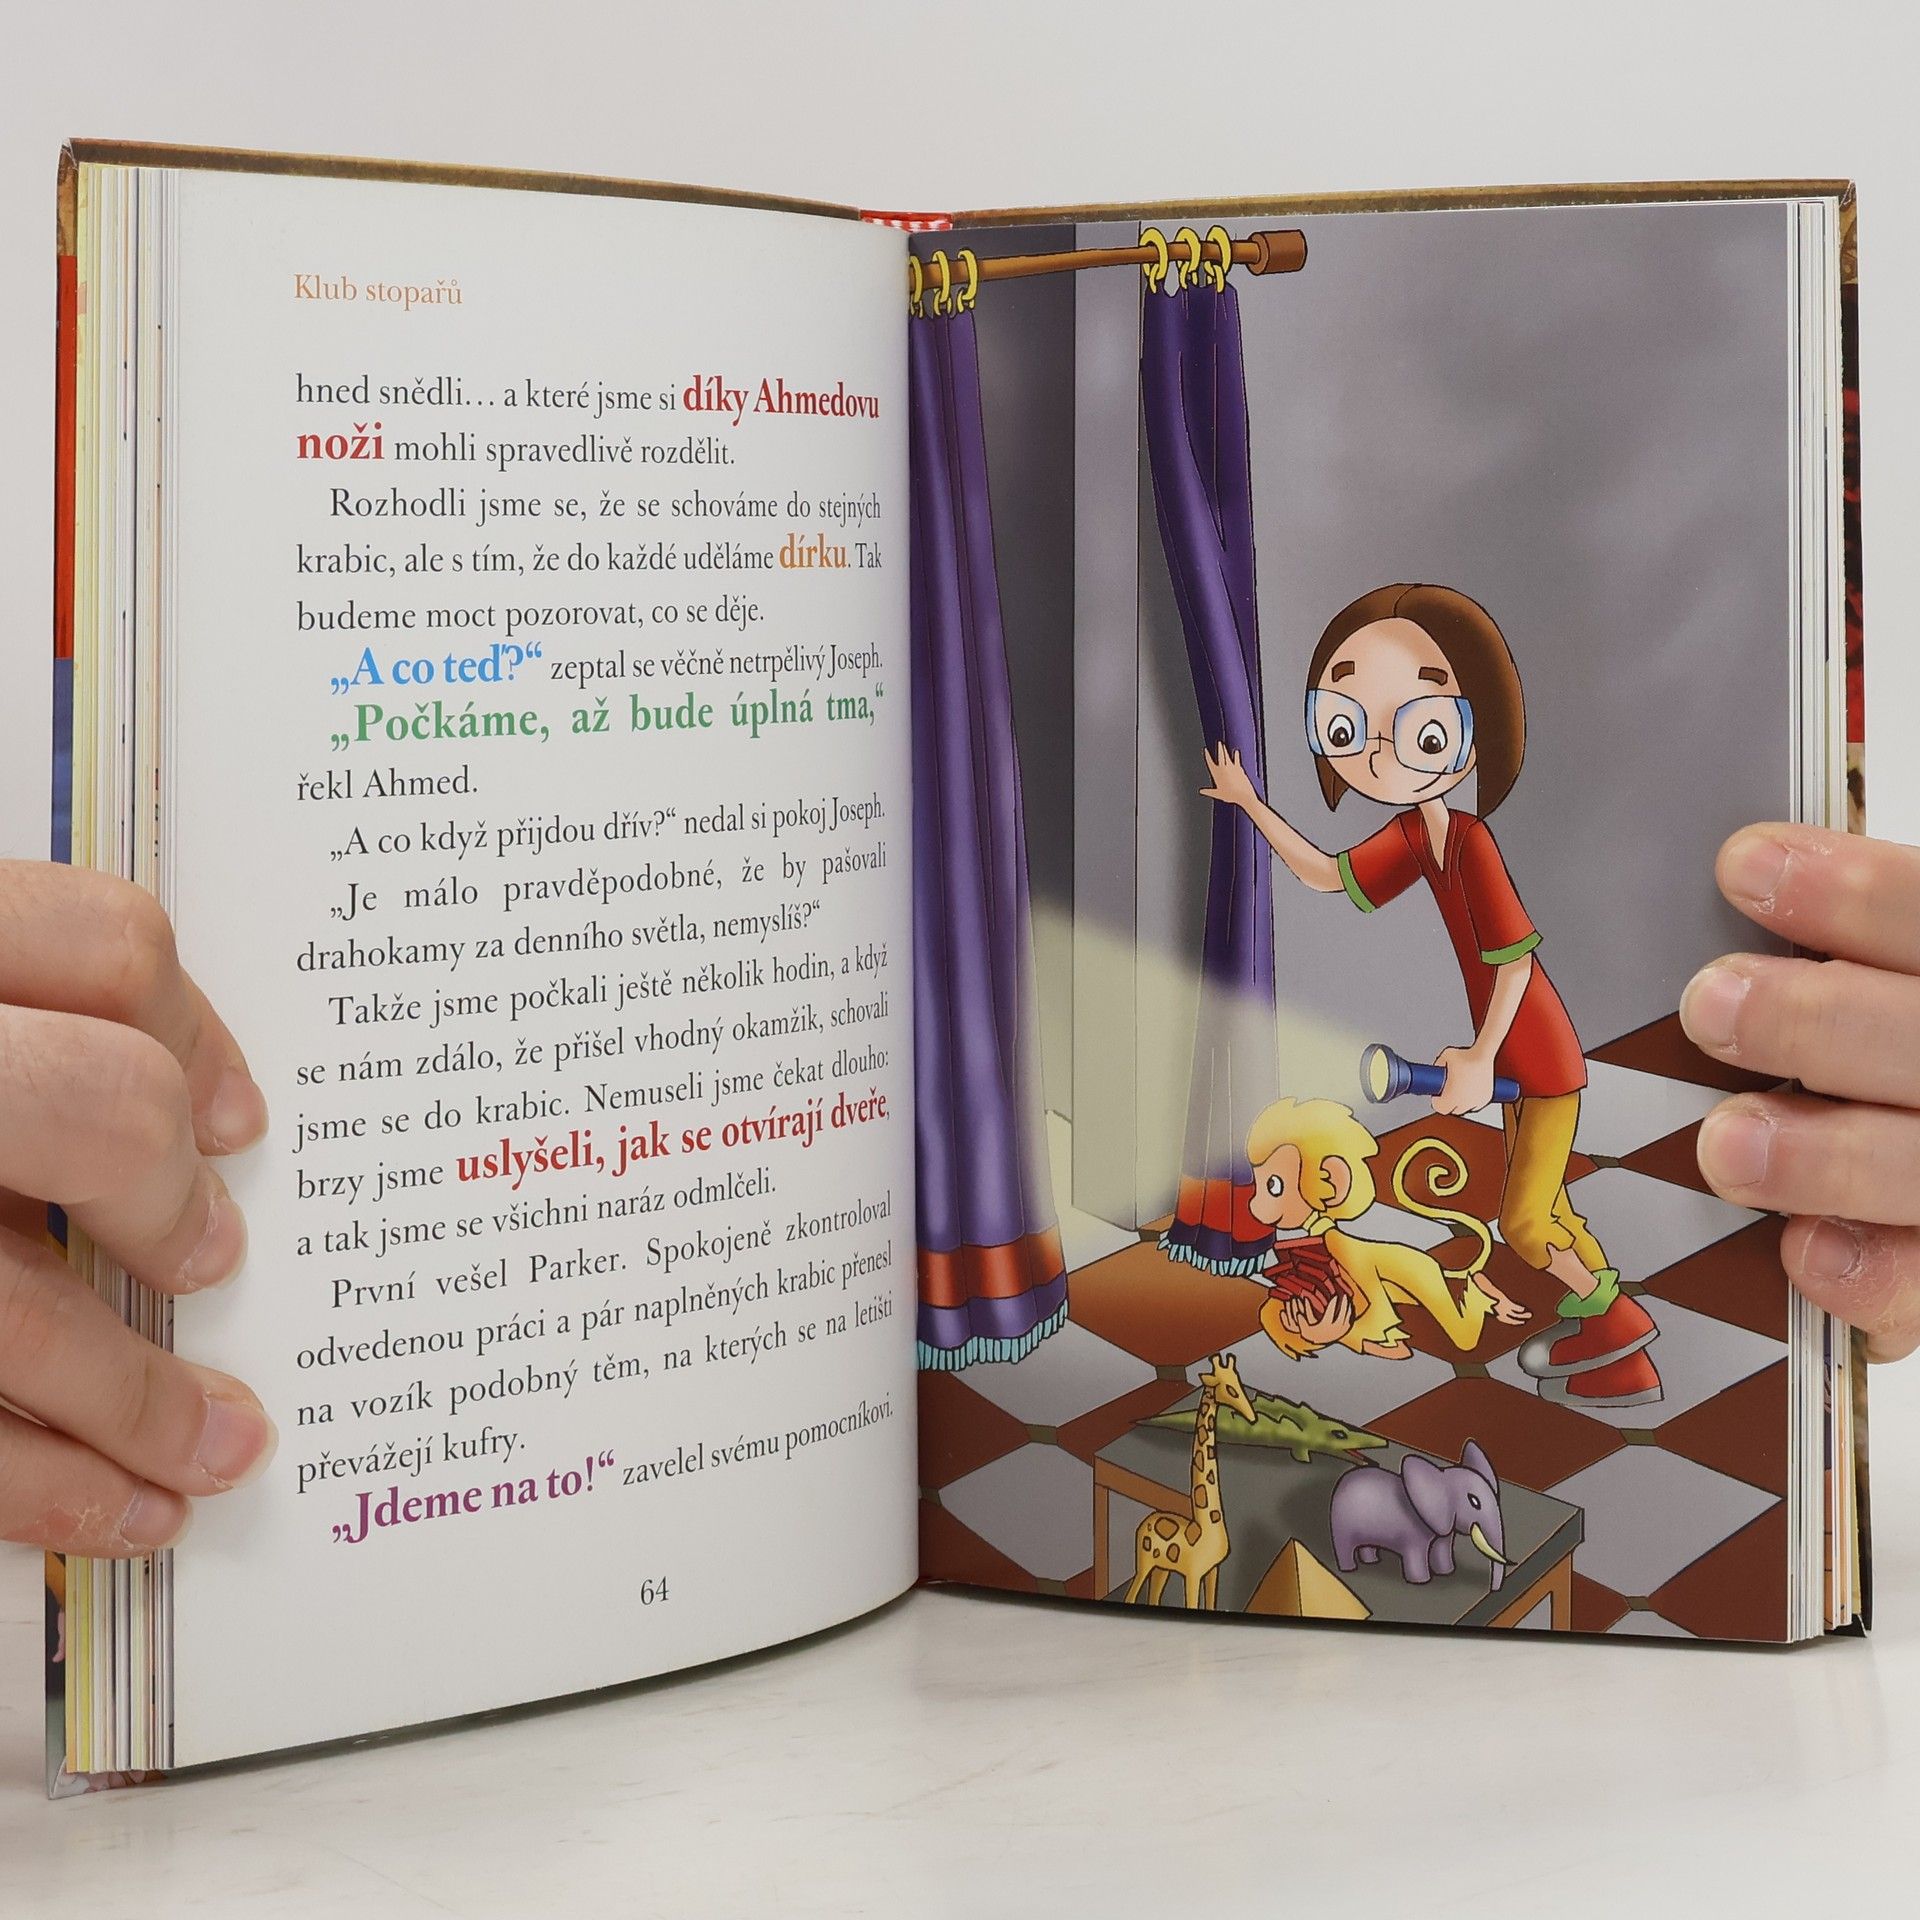 Klub stopařů
hned snědli... a které jsme si díky Ahmedovu
noži mohli spravedlivě rozdělit.
Rozhodli jsme se, že se schováme do stejných
krabic, ale s tím, že do každé uděláme dírku. Tak
budeme moct pozorovat, co se děje.
„A co teď?“ zeptal se věčně netrpělivý Joseph.
„Počkáme, až bude úplná tma,“
řekl Ahmed.
„A co když přijdou dřív?“ nedal si pokoj Joseph.
„Je málo pravděpodobné, že by pašovali
drahokamy za denního světla, nemyslíš?“
Takže jsme počkali ještě několik hodin, a když
se nám zdálo, že přišel vhodný okamžik, schovali
jsme se do krabic. Nemuseli jsme čekat dlouho:
brzy jsme uslyšeli, jak se otvírají dveře,
a tak jsme se všichni naráz odmlčeli.
První vešel Parker. Spokojeně zkontroloval
odvedenou práci a pár naplněných krabic přenesl
na vozík podobný těm, na kterých se na letišti
převážejí kufry.
„Jdeme na to!“ zavelel svému pomocníkovi.
64